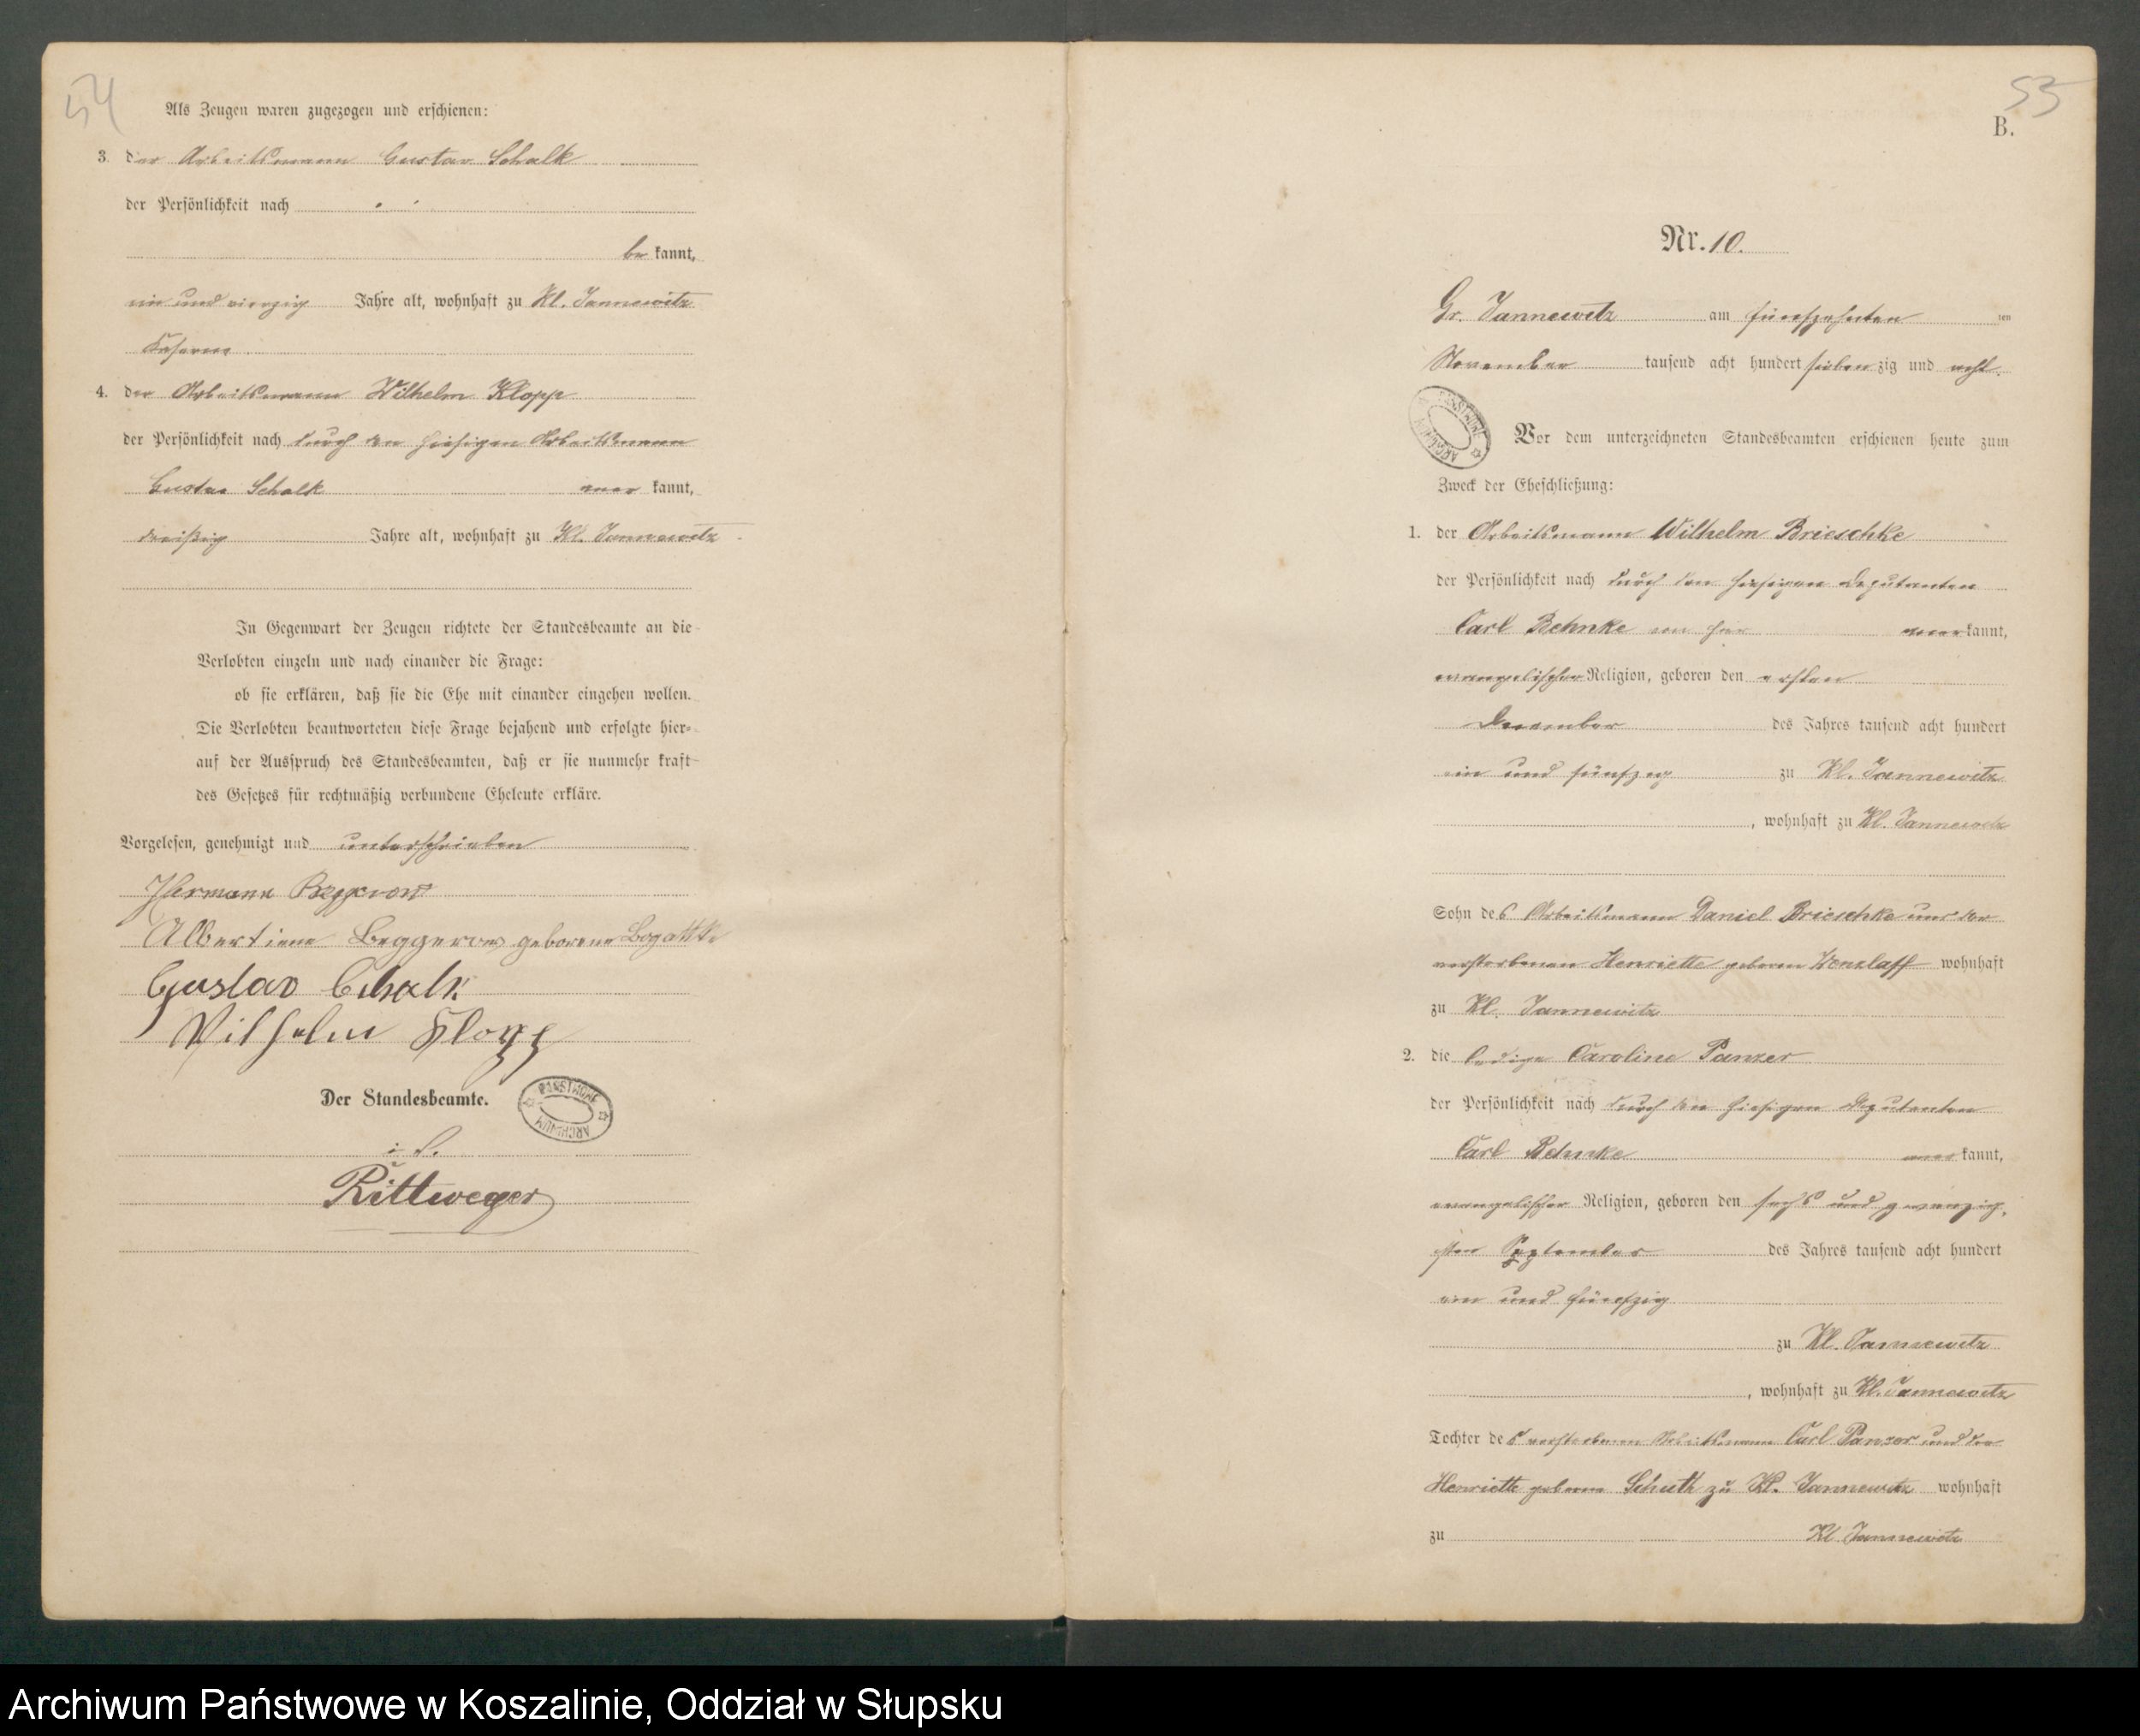 54
Als Zeugen waren zugezogen und erschienen:
3. der Arbeitsmann Gustav Schalk
der Persönlichkeit nach
be kannt,
ein und vierzig Jahre alt, wohnhaft zu Kl. Jannewitz
4. der Arbeitsmann Wilhelm Klopp
der Persönlichkeit nach durch den hiesigen Arbeitsmann
Gustav Schalk aner kannt,
dreißig Jahre alt, wohnhaft zu Kl. Jannewitz
In Gegenwart der Zeugen richtete der Standesbeamte an die
Verlobten einzeln und nach einander die Frage:
ob sie erklären, daß sie die Ehe mit einander eingehen wollen.
Die Verlobten beantworteten diese Frage bejahend und erfolgte hier-
auf der Ausspruch des Standesbeamten, daß er sie nunmehr kraft
des Gesetzes für rechtmäßig verbundene Eheleute erkläre.
Vorgelesen, genehmigt und unterschrieben
Hermann Beggerow
Albertiene Beggerow geborene
Gustav Schalk
Wilhelm Klopp
Der Standesbeamte.
Rittweger
53
B.
Nr. 10.
Gr. Jannewitz am fünfzehnten ten
November tausend acht hundert siebenzig und acht.
Vor dem unterzeichneten Standesbeamten erschienen heute zum
Zweck der Eheschließung:
1. der Arbeitsmann Wilhelm Brieschke
der Persönlichkeit nach durch den hiesigen Deputanten
Carl Behnke von hier aner kannt,
evangelischer Religion, geboren den ersten
Dezember des Jahres tausend acht hundert
ein und fünfzig zu Kl. Jannewitz
, wohnhaft zu Kl. Jannewitz
Sohn des Arbeitsmann Daniel Brieschke und der
verstorbenen Henriette geboren Wenzlaff wohnhaft
zu Kl. Jannewitz
2. die ledige Caroline Panzer
der Persönlichkeit nach durch den hiesigen Deputanten
Carl Behnke aner kannt,
evangelischer Religion, geboren den sechs und zwanzig-
sten September des Jahres tausend acht hundert
ein und fünfzig
zu Kl. Jannewitz
, wohnhaft zu Kl. Jannewitz
Tochter des verstorbenen Arbeitsmann Carl Panzer und der
Henriette geborene Schuth zu Kl. Jannewitz wohnhaft
zu Kl. Jannewitz
Archiwum Państwowe w Koszalinie, Oddział w Słupsku